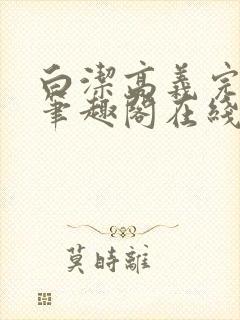 白潔高義完
筆趣閣在綫
莫時離